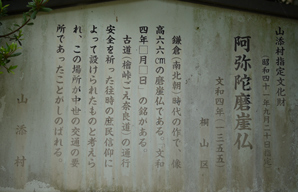 山添村指定文化財
昭和四十一年九月二十日指定
阿弥陀磨崖仏
文和四年(一三五五)
桐山区
鎌倉(南北朝)時代の作で、像
高六六cmの磨崖仏である。文和
四年□月□日の銘がある。
古道(桧峠ごえ奈良道)の通行
安全を祈った往時の庶民信仰に
よって設けられたものと考えら
れ、この場所が中世の交通の要
所であったことがしのばれる。
山添村